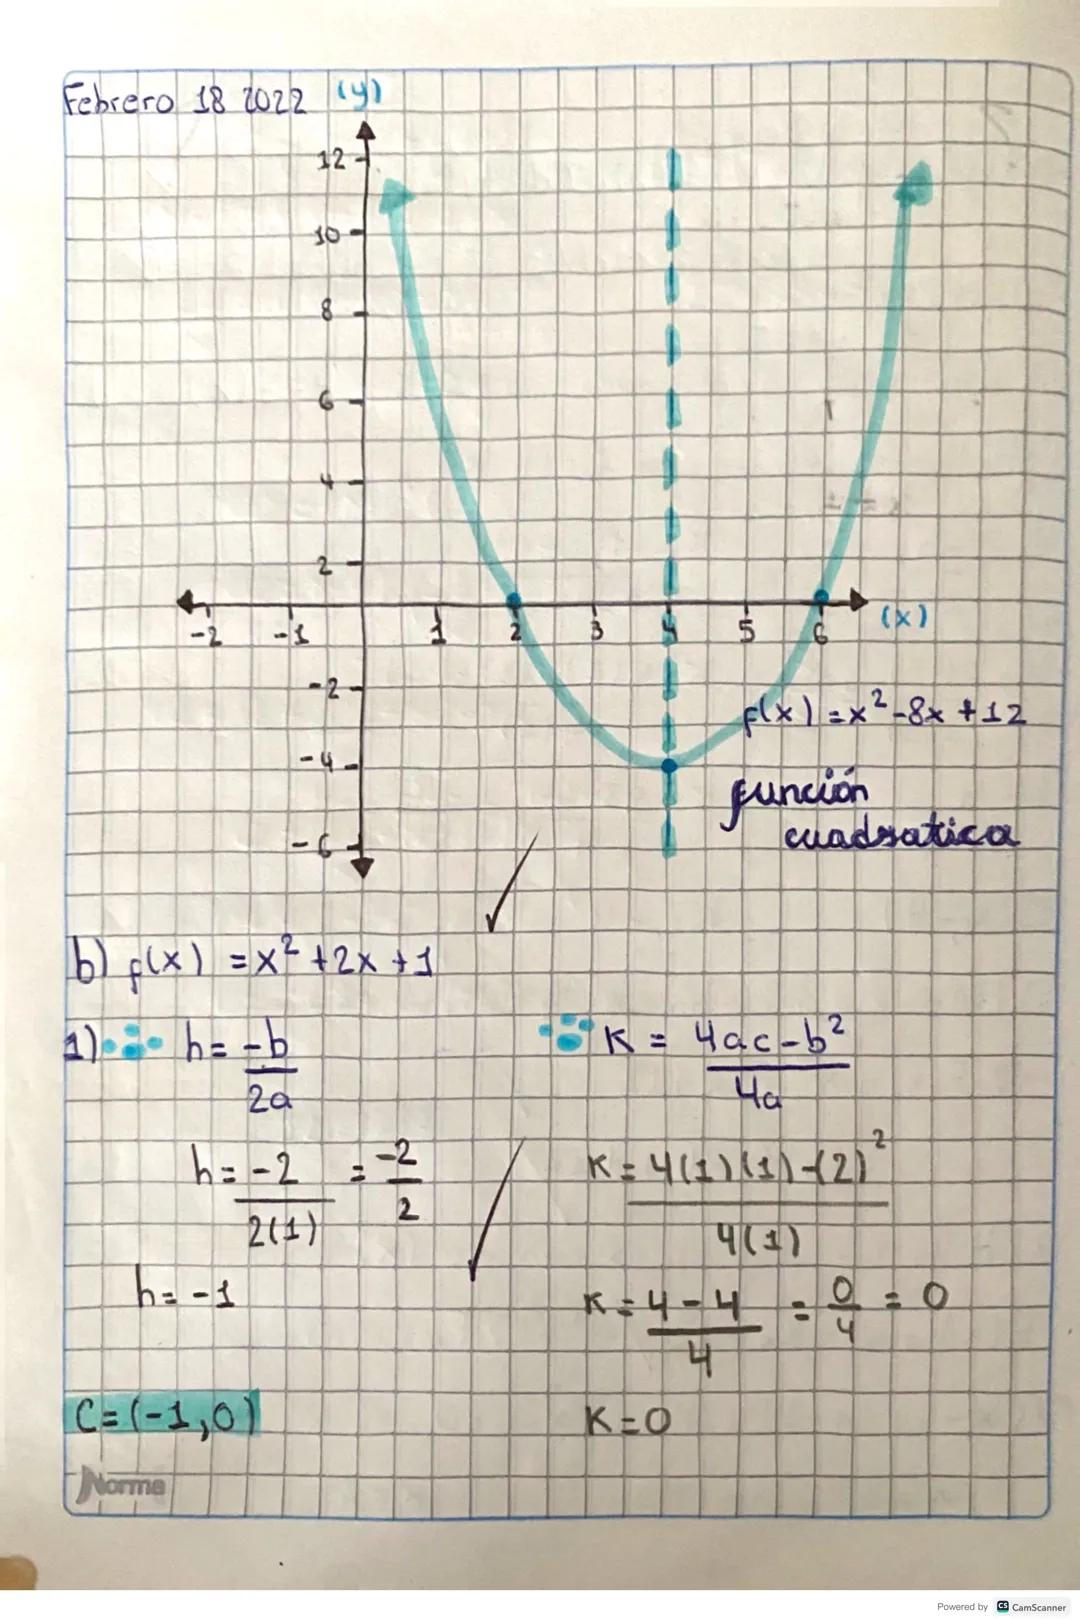 Febrero 18 2022 (y)
12
10
8
6
4
2
-2 -1 1 2 3 4 5 6 (x)
-2
f(x) = x² - 8x + 12
-4
función
cuadratica
-6
b) f(x) = x² + 2x + 1
1) h = -b/2a K = 4ac - b²/4a
h = -2/2(1) = -2/2 K = 4(1)(1) - (2)²/4(1)
h = -1 K = 4 - 4/4 = 0/4 = 0
C = (-1,0) K = 0
Norma
Powered by CS CamScanner